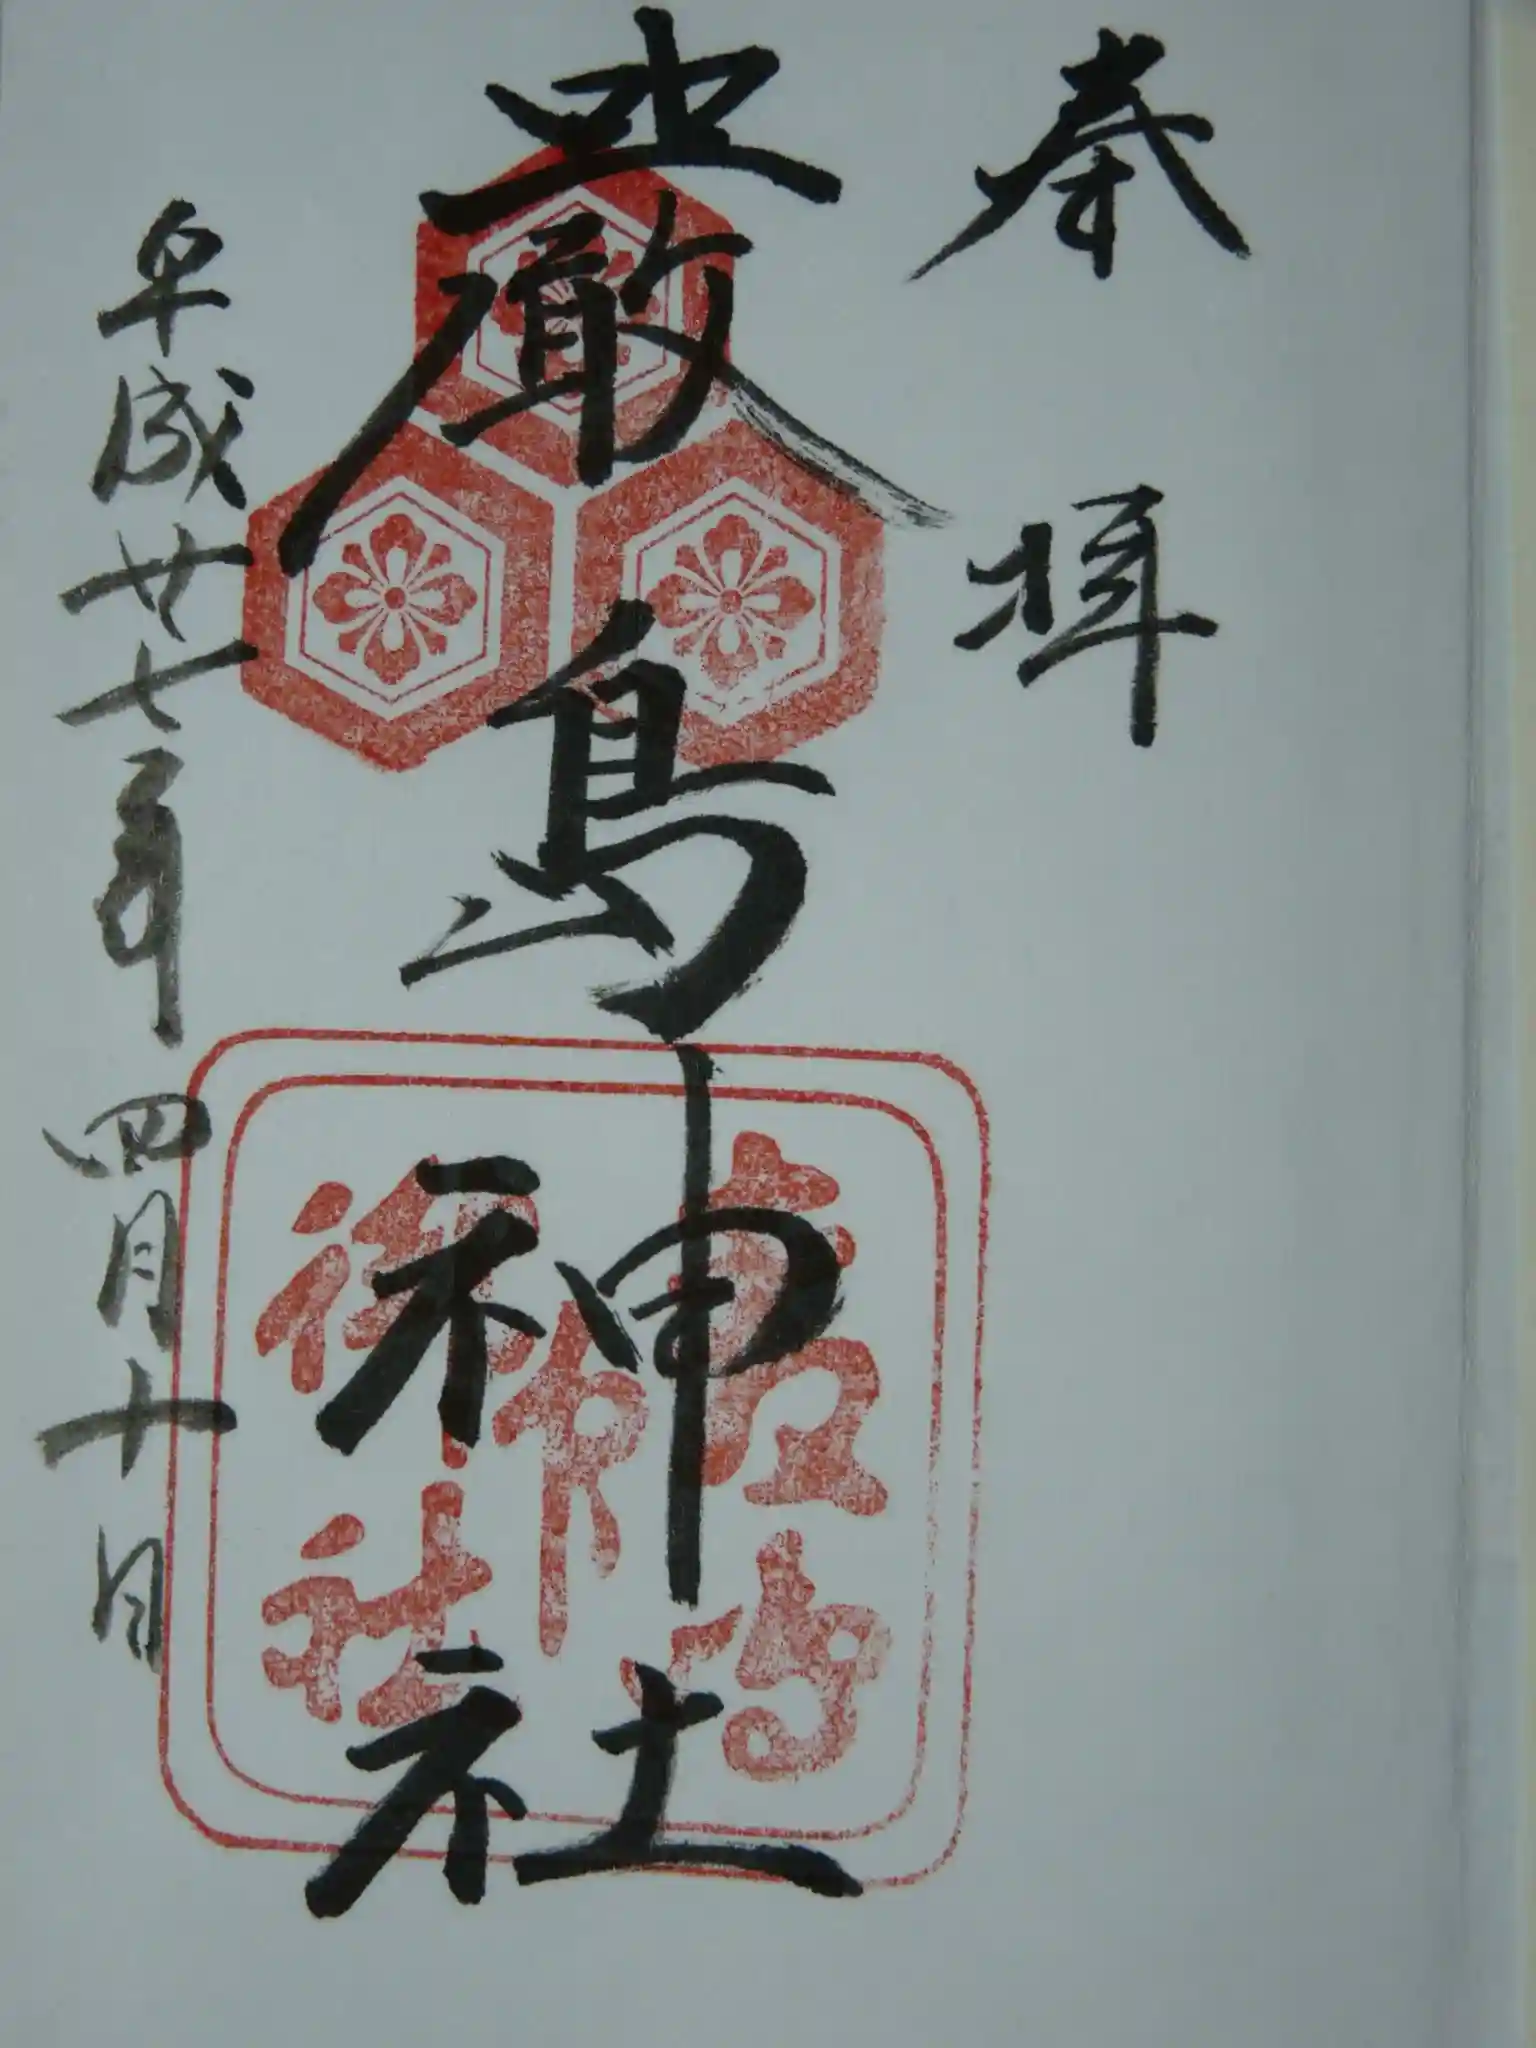 奉拝
厳島神社
厳島
御神社
平成廿七年四月十日